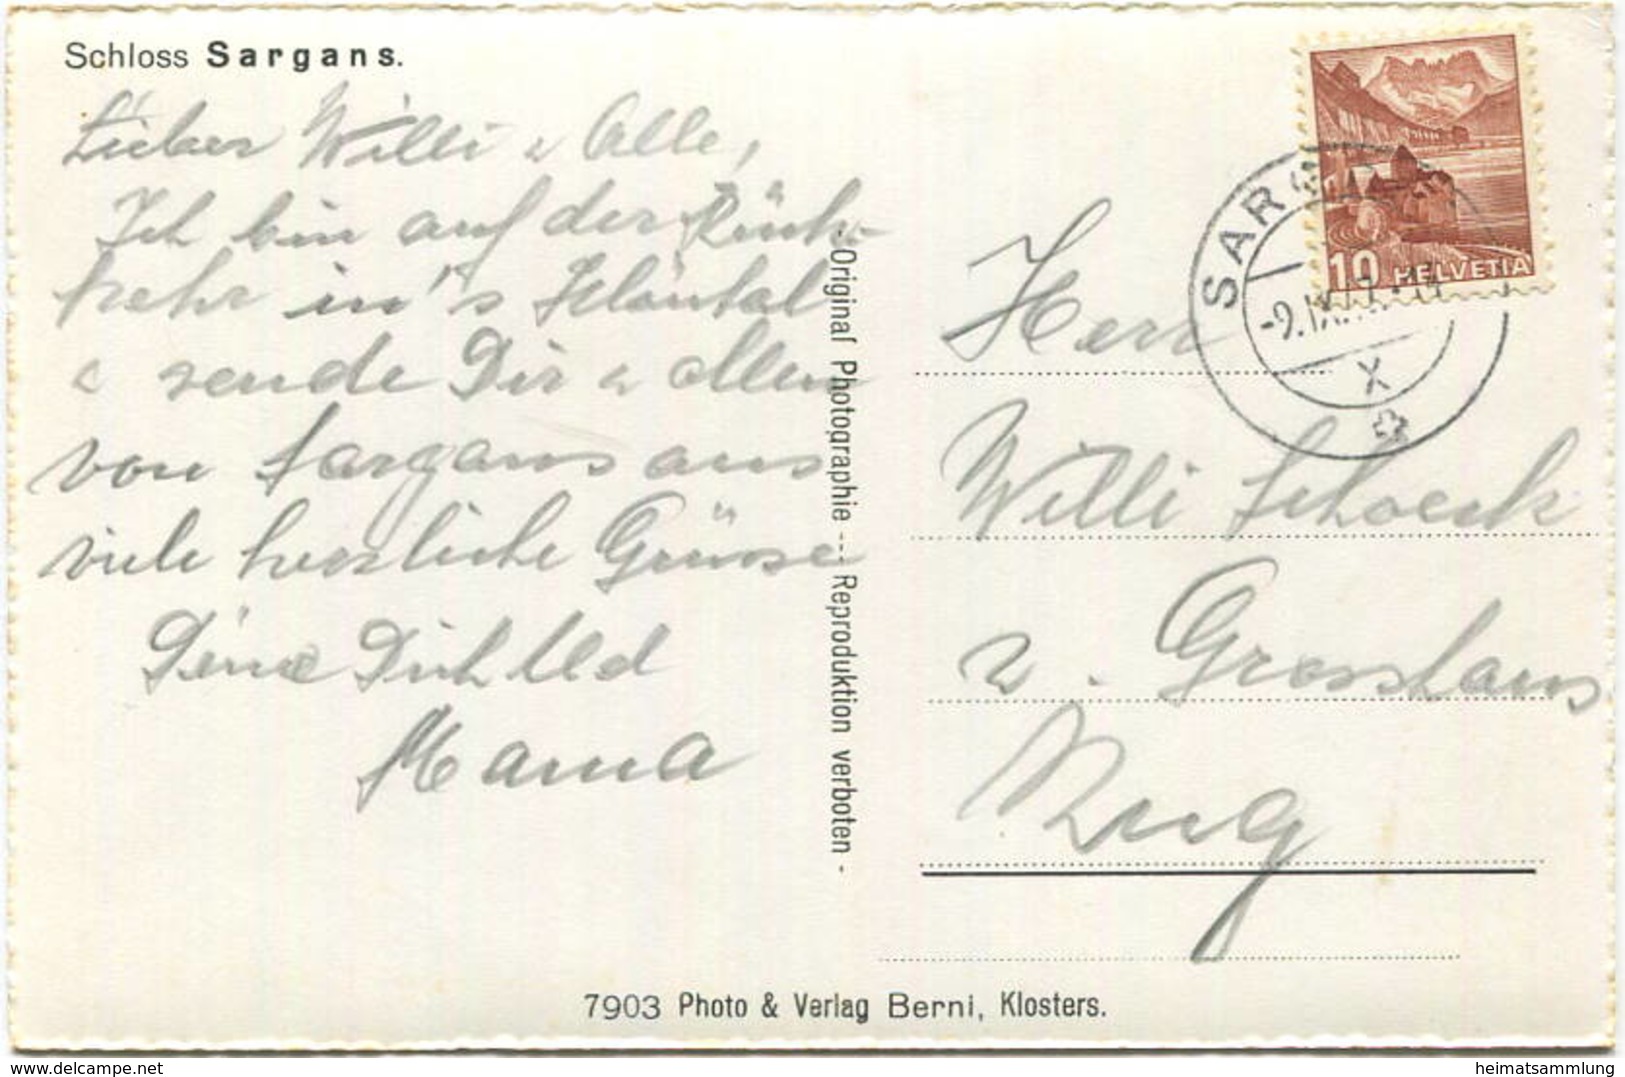 Schloss Sargans.
Lieber Willi & Alle,
Ich bin auf der Rück-
kehr in's Klöntal
& sende Dir & allen
von Sargans aus
viele herzliche Grüsse
Deine Dich lbd
Mama
- Original Photographie --- Reproduktion verboten -
HELVETIA
10
SARGANS
-9.IX.
X
Herr
Willi Schoeck
z. Grosshaus
Zug
7903 Photo & Verlag Berni, Klosters.
delcampe.net
heimatsammlung